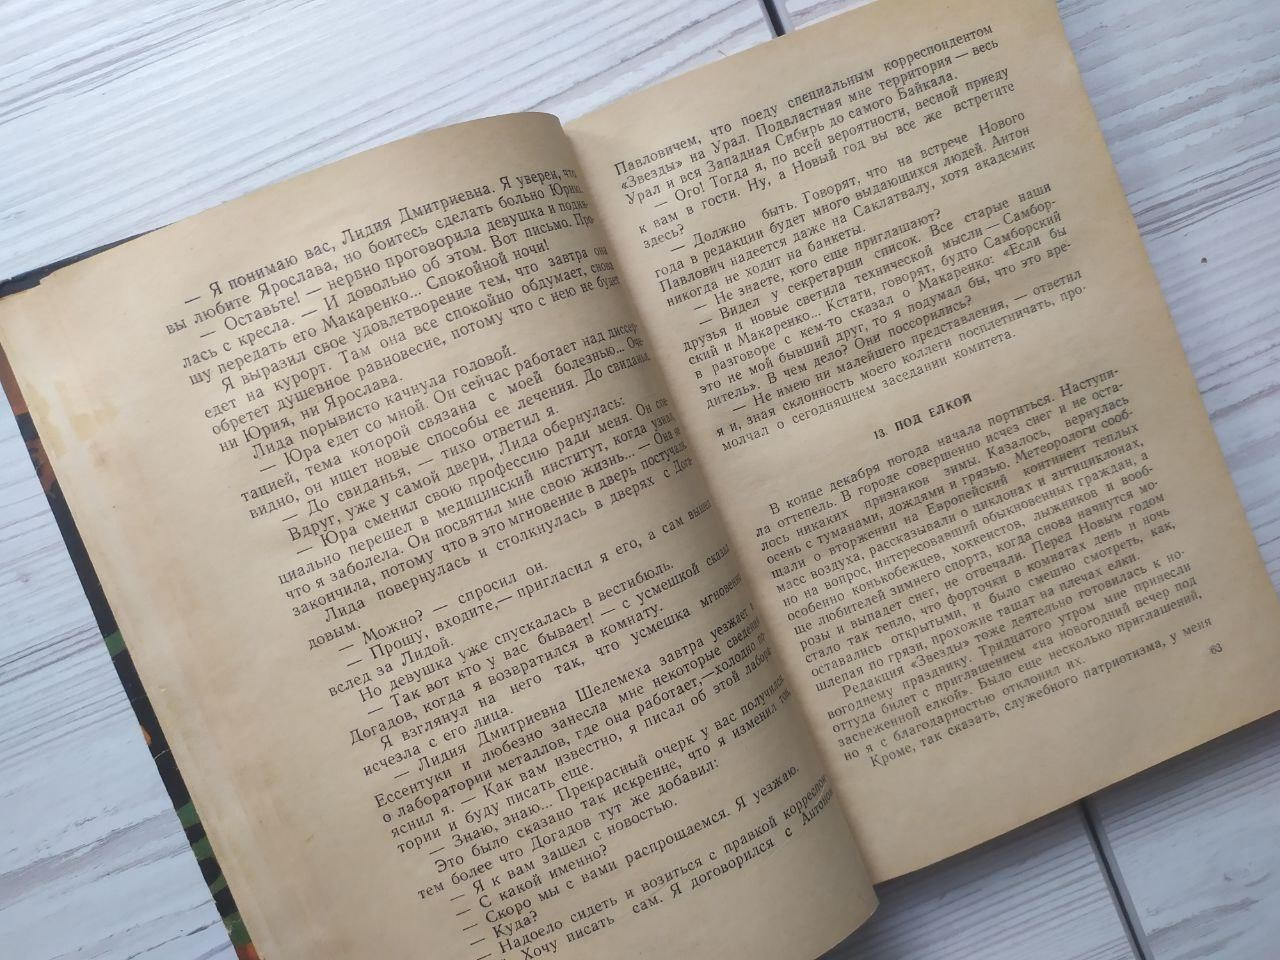 — Я понимаю вас, Лидия Дмитриевна. Я уверен, что
вы любите Ярослава, но боитесь сделать больно Юрию.
— Оставьте! — нервно проговорила девушка и подня-
лась с кресла. — И довольно об этом. Вот письмо. Про-
шу передать его Макаренко... Спокойной ночи!
Я выразил свое удовлетворение тем, что завтра она
едет на курорт. Там она все спокойно обдумает, снова
обретет душевное равновесие, потому что с нею не будет
ни Юрия, ни Ярослава.
Лида порывисто качнула головой.
— Юра едет со мной. Он сейчас работает над диссер-
тацией, тема которой связана с моей болезнью... Оче-
видно, он ищет новые способы ее лечения. До свиданья.
— До свиданья, — тихо ответил я.
Вдруг, уже у самой двери, Лида обернулась:
— Юра сменил свою профессию ради меня. Он спе-
циально перешел в медицинский институт, когда узнал,
что я заболела. Он посвятил мне свою жизнь... — Она не
закончила, потому что в это мгновение в дверь постучали.
Лида повернулась и столкнулась в дверях с Дога-
довым.
— Можно? — спросил он.
— Прошу, входите,— пригласил я его, а сам вышел
вслед за Лидой.
Но девушка уже спускалась в вестибюль.
— Так вот кто у вас бывает! — с усмешкой сказал
Догадов, когда я возвратился в комнату.
Я взглянул на него так, что усмешка мгновенно
исчезла с его лица.
— Лидия Дмитриевна Шелемеха завтра уезжает в
Ессентуки и любезно занесла мне некоторые сведения
о лаборатории металлов, где она работает,—холодно по-
яснил я. — Как вам известно, я писал об этой лабора-
тории и буду писать еще.
— Знаю, знаю... Прекрасный очерк у вас получился.
Это было сказано так искренне, что я изменил тон,
тем более что Догадов тут же добавил:
— Я к вам зашел с новостью.
— С какой именно?
— Скоро мы с вами распрощаемся. Я уезжаю.
— Куда?
— Надоело сидеть и возиться с правкой корреспон-
Хочу писать сам. Я договорился с Антоном
Павловичем, что поеду специальным корреспондентом
«Звезды» на Урал. Подвластная мне территория — весь
Урал и вся Западная Сибирь до самого Байкала.
— Ого! Тогда я, по всей вероятности, весной приеду
к вам в гости. Ну, а Новый год вы все же встретите
здесь?
— Должно быть. Говорят, что на встрече Нового
года в редакции будет много выдающихся людей. Антон
Павлович надеется даже на Саклатвалу, хотя академик
никогда не ходит на банкеты.
— Не знаете, кого еще приглашают?
— Видел у секретарши список. Все старые наши
друзья и новые светила технической мысли — Самбор-
ский и Макаренко... Кстати, говорят, будто Самборский
в разговоре с кем-то сказал о Макаренко: «Если бы
это не мой бывший друг, то я подумал бы, что это вре-
дитель». В чем дело? Они поссорились?
— Не имею ни малейшего представления, — ответил
я и, зная склонность моего коллеги посплетничать, про-
молчал о сегодняшнем заседании комитета.
13. ПОД ЕЛКОЙ
В конце декабря погода начала портиться. Наступи-
ла оттепель. В городе совершенно исчез снег и не оста-
лось никаких признаков зимы. Казалось, вернулась
осень с туманами, дождями и грязью. Метеорологи сооб-
щали о вторжении на Европейский континент теплых
масс воздуха, рассказывали о циклонах и антициклонах,
но на вопрос, интересовавший обыкновенных граждан, а
особенно конькобежцев, хоккеистов, лыжников и вооб-
ще любителей зимнего спорта, когда снова начнутся мо-
розы и выпадет снег, не отвечали. Перед Новым годом
стало так тепло, что форточки в комнатах день и ночь
оставались открытыми, и было смешно смотреть, как,
шлепая по грязи, прохожие тащат на плечах елки.
Редакция «Звезды» тоже деятельно готовилась к но-
вогоднему празднику. Тридцатого утром мне принесли
оттуда билет с приглашением «на новогодний вечер под
заснеженной елкой». Было еще несколько приглашений,
но я с благодарностью отклонил их.
Кроме, так сказать, служебного патриотизма, у меня
63